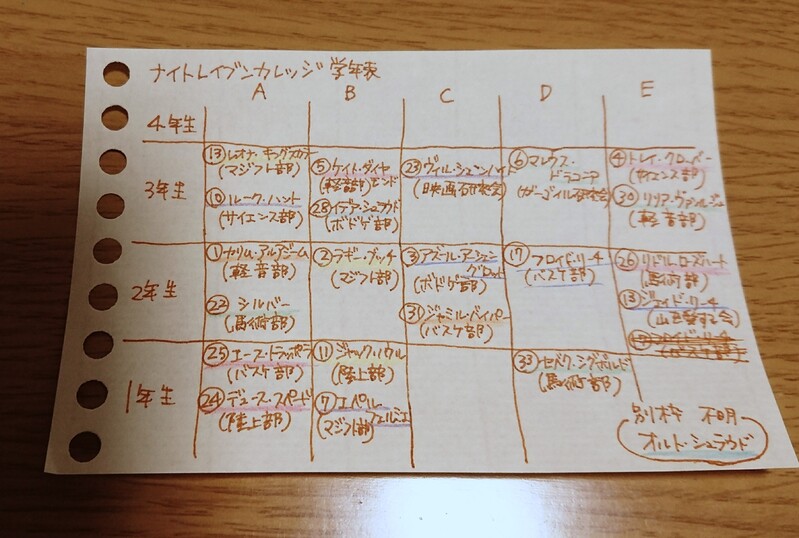 ナイトレイブンカレッジ 学年表
A B C D E
4年生
3年生
⑬レオナ・キングスカラー
(マジフト部)
⑩ルーク・ハント
(サイエンス部)
⑤ケイト・ダイヤモンド
(軽音部)
㉘イデア・シュラウド
(ボドゲ部)
㉓ヴィル・シェーンハイト
(映画研究会)
⑥マレウス・
ドラコニア
(ガーゴイル研究会)
④トレイ・クローバー
(サイエンス部)
㉚リリア・ヴァンルージュ
(軽音部)
2年生
①カリム・アルアジーム
(軽音部)
㉒シルバー
(馬術部)
②ラギー・ブッチ
(マジフト部)
③アズール・アーシェン
グロット
(ボドゲ部)
㉛ジャミル・バイパー
(バスケ部)
⑰フロイド・リーチ
(バスケ部)
㉖リドル・ローズハート
(馬術部)
⑬ジェイド・リーチ
(山を愛する会)
1年生
㉕エース・トラッポラ
(バスケ部)
㉔デュース・スペード
(陸上部)
⑪ジャック・ハウル
(陸上部)
⑦エペル・
フェルミエ
(マジフト部)
㉝セベク・ジグボルト
(馬術部)
別枠 不明
オルト・シュラウド